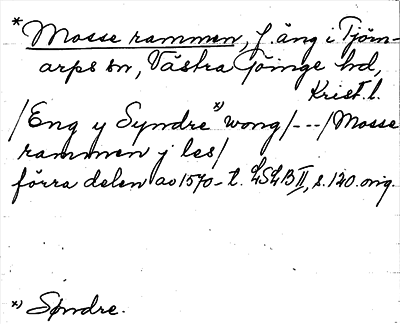 * Mosse rammen, f. äng i Tjörn-
arps sn, Västra Göinge hd,
Krist. l.
/Eng y Syndre *) wong/---/Mosse
rammen j les/
förra delen av 1570-t. LSLB II, s. 120. orig.
*) Søndre.